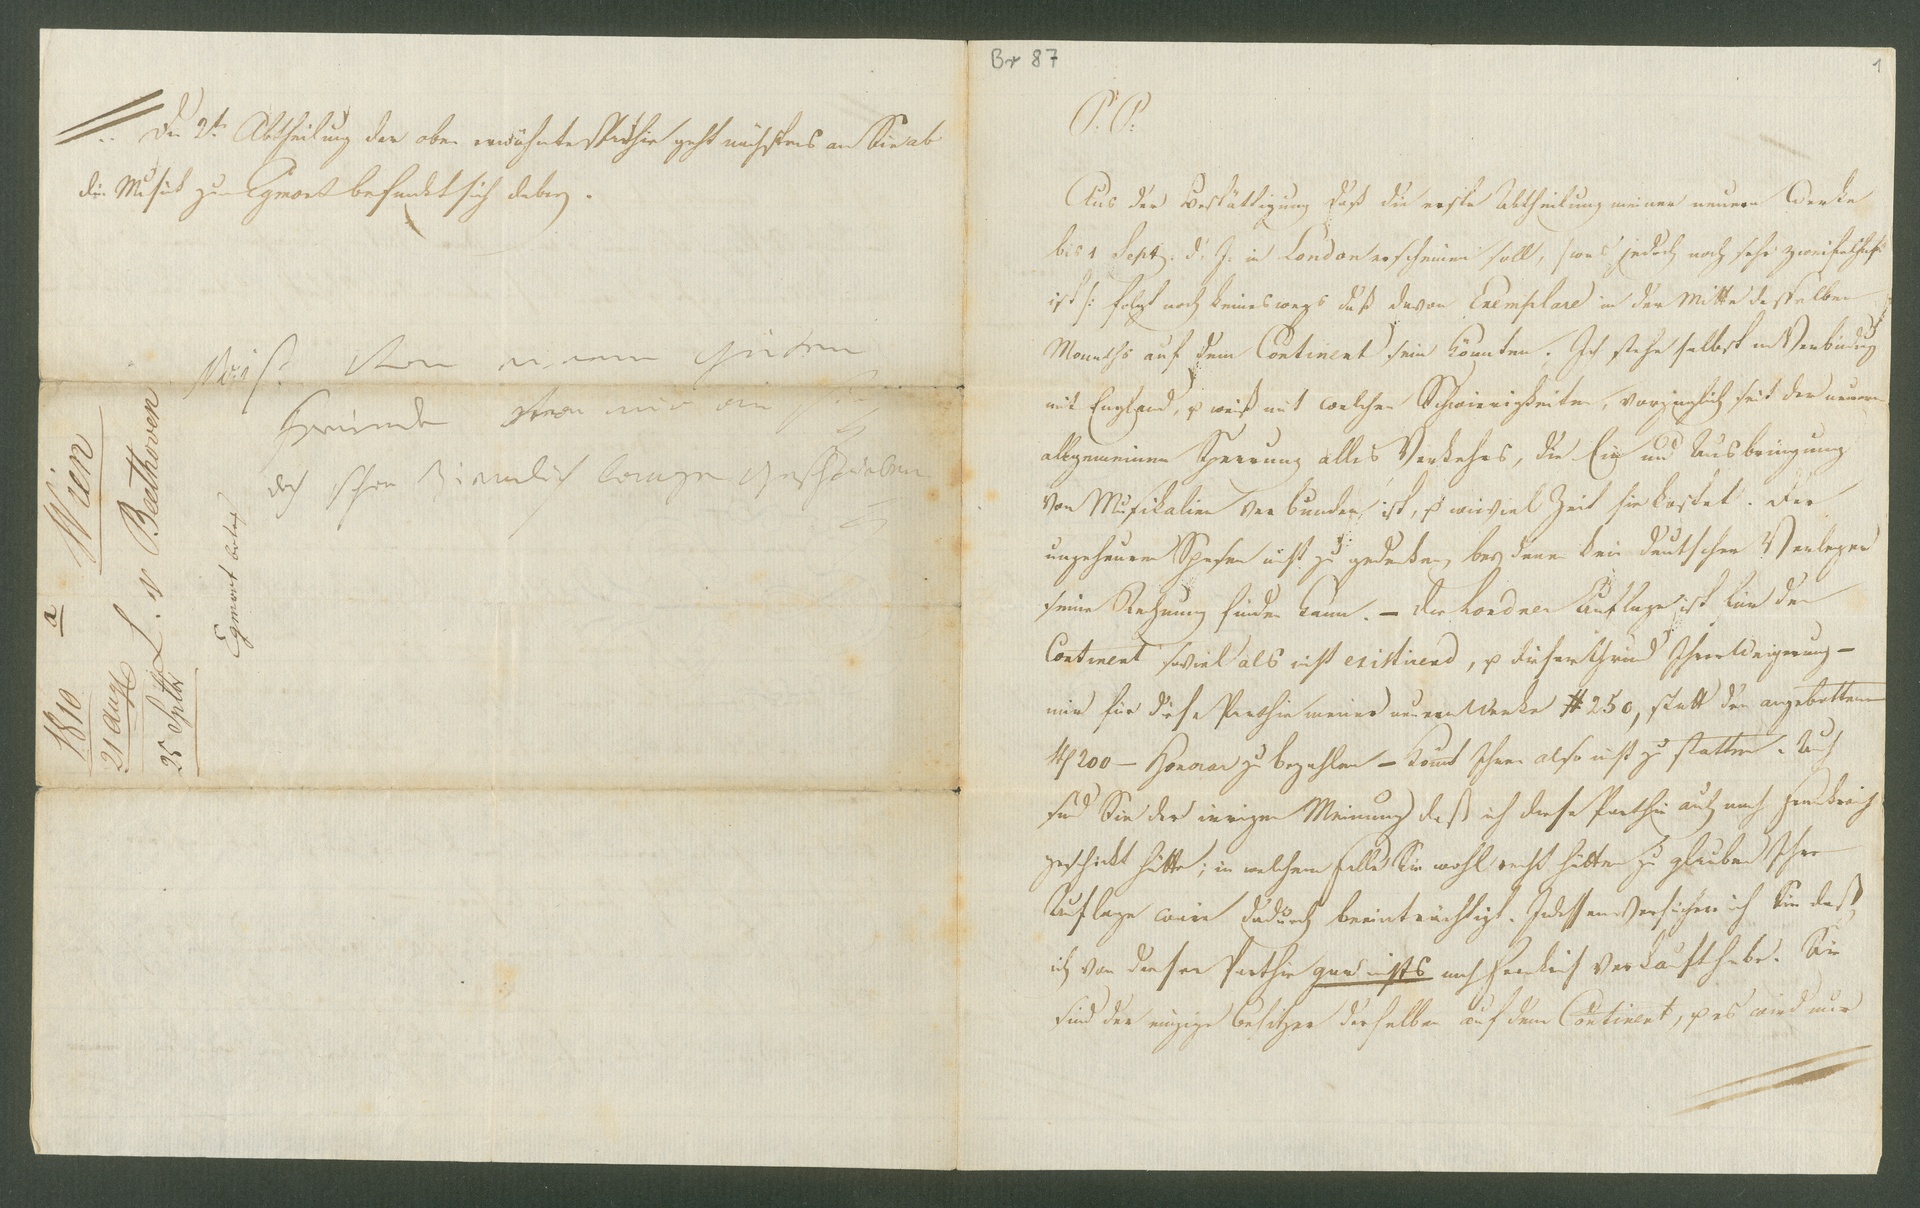 Die 2te Abtheilung der oben erwähnten Parthie geht nächstens an Sie ab
die Musik zu Egmont befindet sich dabey.
von einem guten
Freunde von mir
doch schon ziemlich lange geschrieben
1810 a Wien
21 Aug
L. v Beethoven
25 Septbr
Egmont betref
Br 87
1
P. P.
Aus der Bestättigung daß die erste Abtheilung meiner neuern Werke
bis 1 Sept. d. J. in London erscheinen soll, /: was jedoch noch sehr zweifelhaft
ist :/ folgt noch keineswegs daß davon Exemplare in der Mitte desselben
Monaths auf dem Continent sein könnten. Ich stehe selbst in Verbindung
mit England, u weiß mit welchen Schwierigkeiten, vorzüglich seit der neuern
allgemeinen Sperrung alles Verkehrs, die Ein und Ausbringung
von Musikalien verbunden ist, u wieviel Zeit sie kostet. Der
ungeheuern Spesen nicht zu gedenken, bey denen kein deutscher Verleger
seine Rechnung finden kann. – Die Londner Auflage ist für den
Continent soviel als nicht existirend, u dieser Grund Ihrer Weigerung –
mir für diese Parthie meiner neuern Werke # 250, statt den angebottenen
# 200 – Honorar zu bezahlen – kömt Ihnen also nicht zu statten. Auch
sind Sie der irrigen Meinung daß ich diese Parthie auch nach Frankreich
geschickt hätte; in welchem Falle Sie wohl recht hätten zu glauben Ihre
Auflage wäre dadurch beeinträchtigt. Indessen versichere ich Sie daß
ich von dieser Parthie gar nichts nach Frankreich verkauft habe. Sie
sind der einzige Besitzer derselben auf dem Continent, u es wird nur